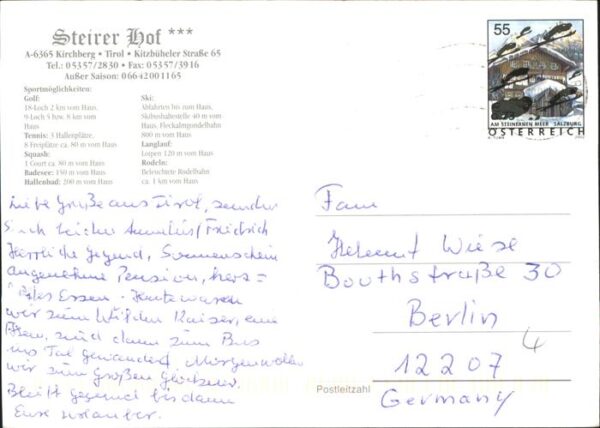 Steirer Hof ***
A-6365 Kirchberg • Tirol • Kitzbüheler Straße 65
Tel.: 05357/2830 • Fax: 05357/3916
Außer Saison: 06642001165
Sportmöglichkeiten:
Golf:
18-Loch 2 km vom Haus
9-Loch 5 bzw. 8 km vom
Haus
Tennis: 3 Hallenplätze,
8 Freiplätze ca. 80 m vom Haus
Squash:
1 Court ca. 80 m vom Haus
Badesee: 150 m vom Haus
Hallenbad: 200 m vom Haus
Ski:
Abfahrten bis zum Haus,
Skibushaltestelle 40 m vom
Haus, Fleckalmgondelbahn
800 m vom Haus
Langlauf:
Loipen 120 m vom Haus
Rodeln:
Beleuchtete Rodelbahn
ca. 1 km vom Haus
55
AM STEINERNEN MEER SALZBURG
ÖSTERREICH
Liebe Grüße aus Tirol, senden
Friedrich
Herrliche Gegend, Sonnenschein
angenehme Pension, herz=
Essen. Heute waren
wir zum Wilden Kaiser, eine
und dann zum Bus
ins Tal gewandert. Morgen wollen
wir zum Großen Glockner.
Bleibt gesund bis dann
Eure
Fam
Helmut Wiese
Boothstraße 30
Berlin
4
12207
Postleitzahl
Germany